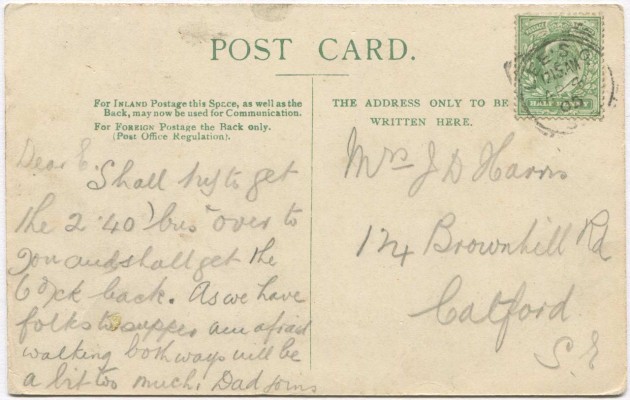 POST CARD.
For INLAND Postage this Space, as well as the
Back, may now be used for Communication.
For FOREIGN Postage the Back only.
(Post Office Regulation).
THE ADDRESS ONLY TO BE
WRITTEN HERE.
HALF PENNY
Dear E.
Shall try to get
the 2.40 'bus over to
you and shall get the
6 o'ck back. As we have
folks to supper am afraid
walking both ways will be
a bit too much. Dad joins
Mrs J D Harris
124 Brownhill Rd
Catford
S.E